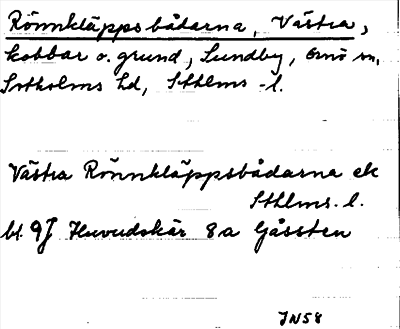 Rönnkläppsbådarna, Västra,
kobbar o. grund, Sundby, Ornö sn,
Sotholms hd, Sthlms l.
Västra Rönnkläppsbådarna ek
Sthlms. l.
bl. 9J Huvudskär 8a Gåssten
JN58